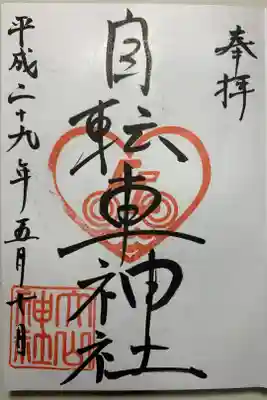 奉拝
自転車神社
平成二十九年五月十日